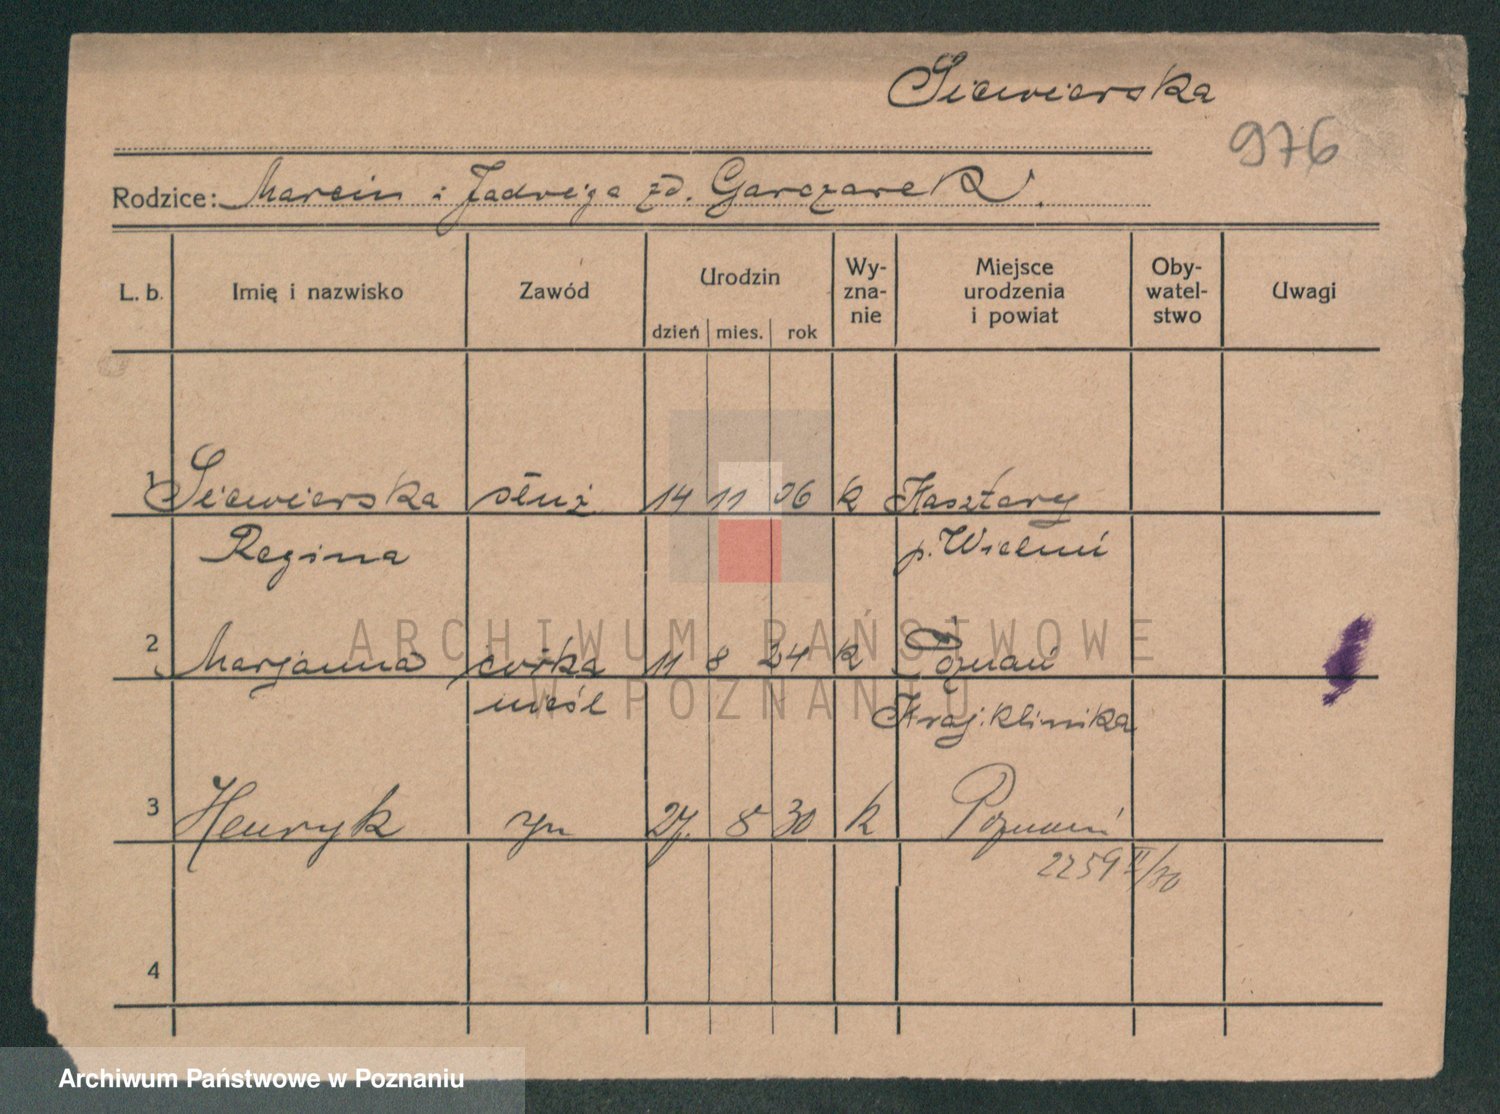 Siewierska
976
Rodzice: Marcin i Jadwiga zd. Garczarek.
L. b. Imię i nazwisko Zawód Urodzin dzień mies. rok Wy-zna-nie Miejsce urodzenia i powiat Oby-watel-stwo Uwagi
1 Siewierska służ 14 11 06 k Kasztary
Regina p. Wieluń
2 Marjanna córka 11 8 24 k Poznań
nieśl Kraj. klinika
3 Henryk syn 27. 8 30 k Poznań
2259 II/30
4
ARCHIWUM PAŃSTWOWE
W POZNANIU
Archiwum Państwowe w Poznaniu